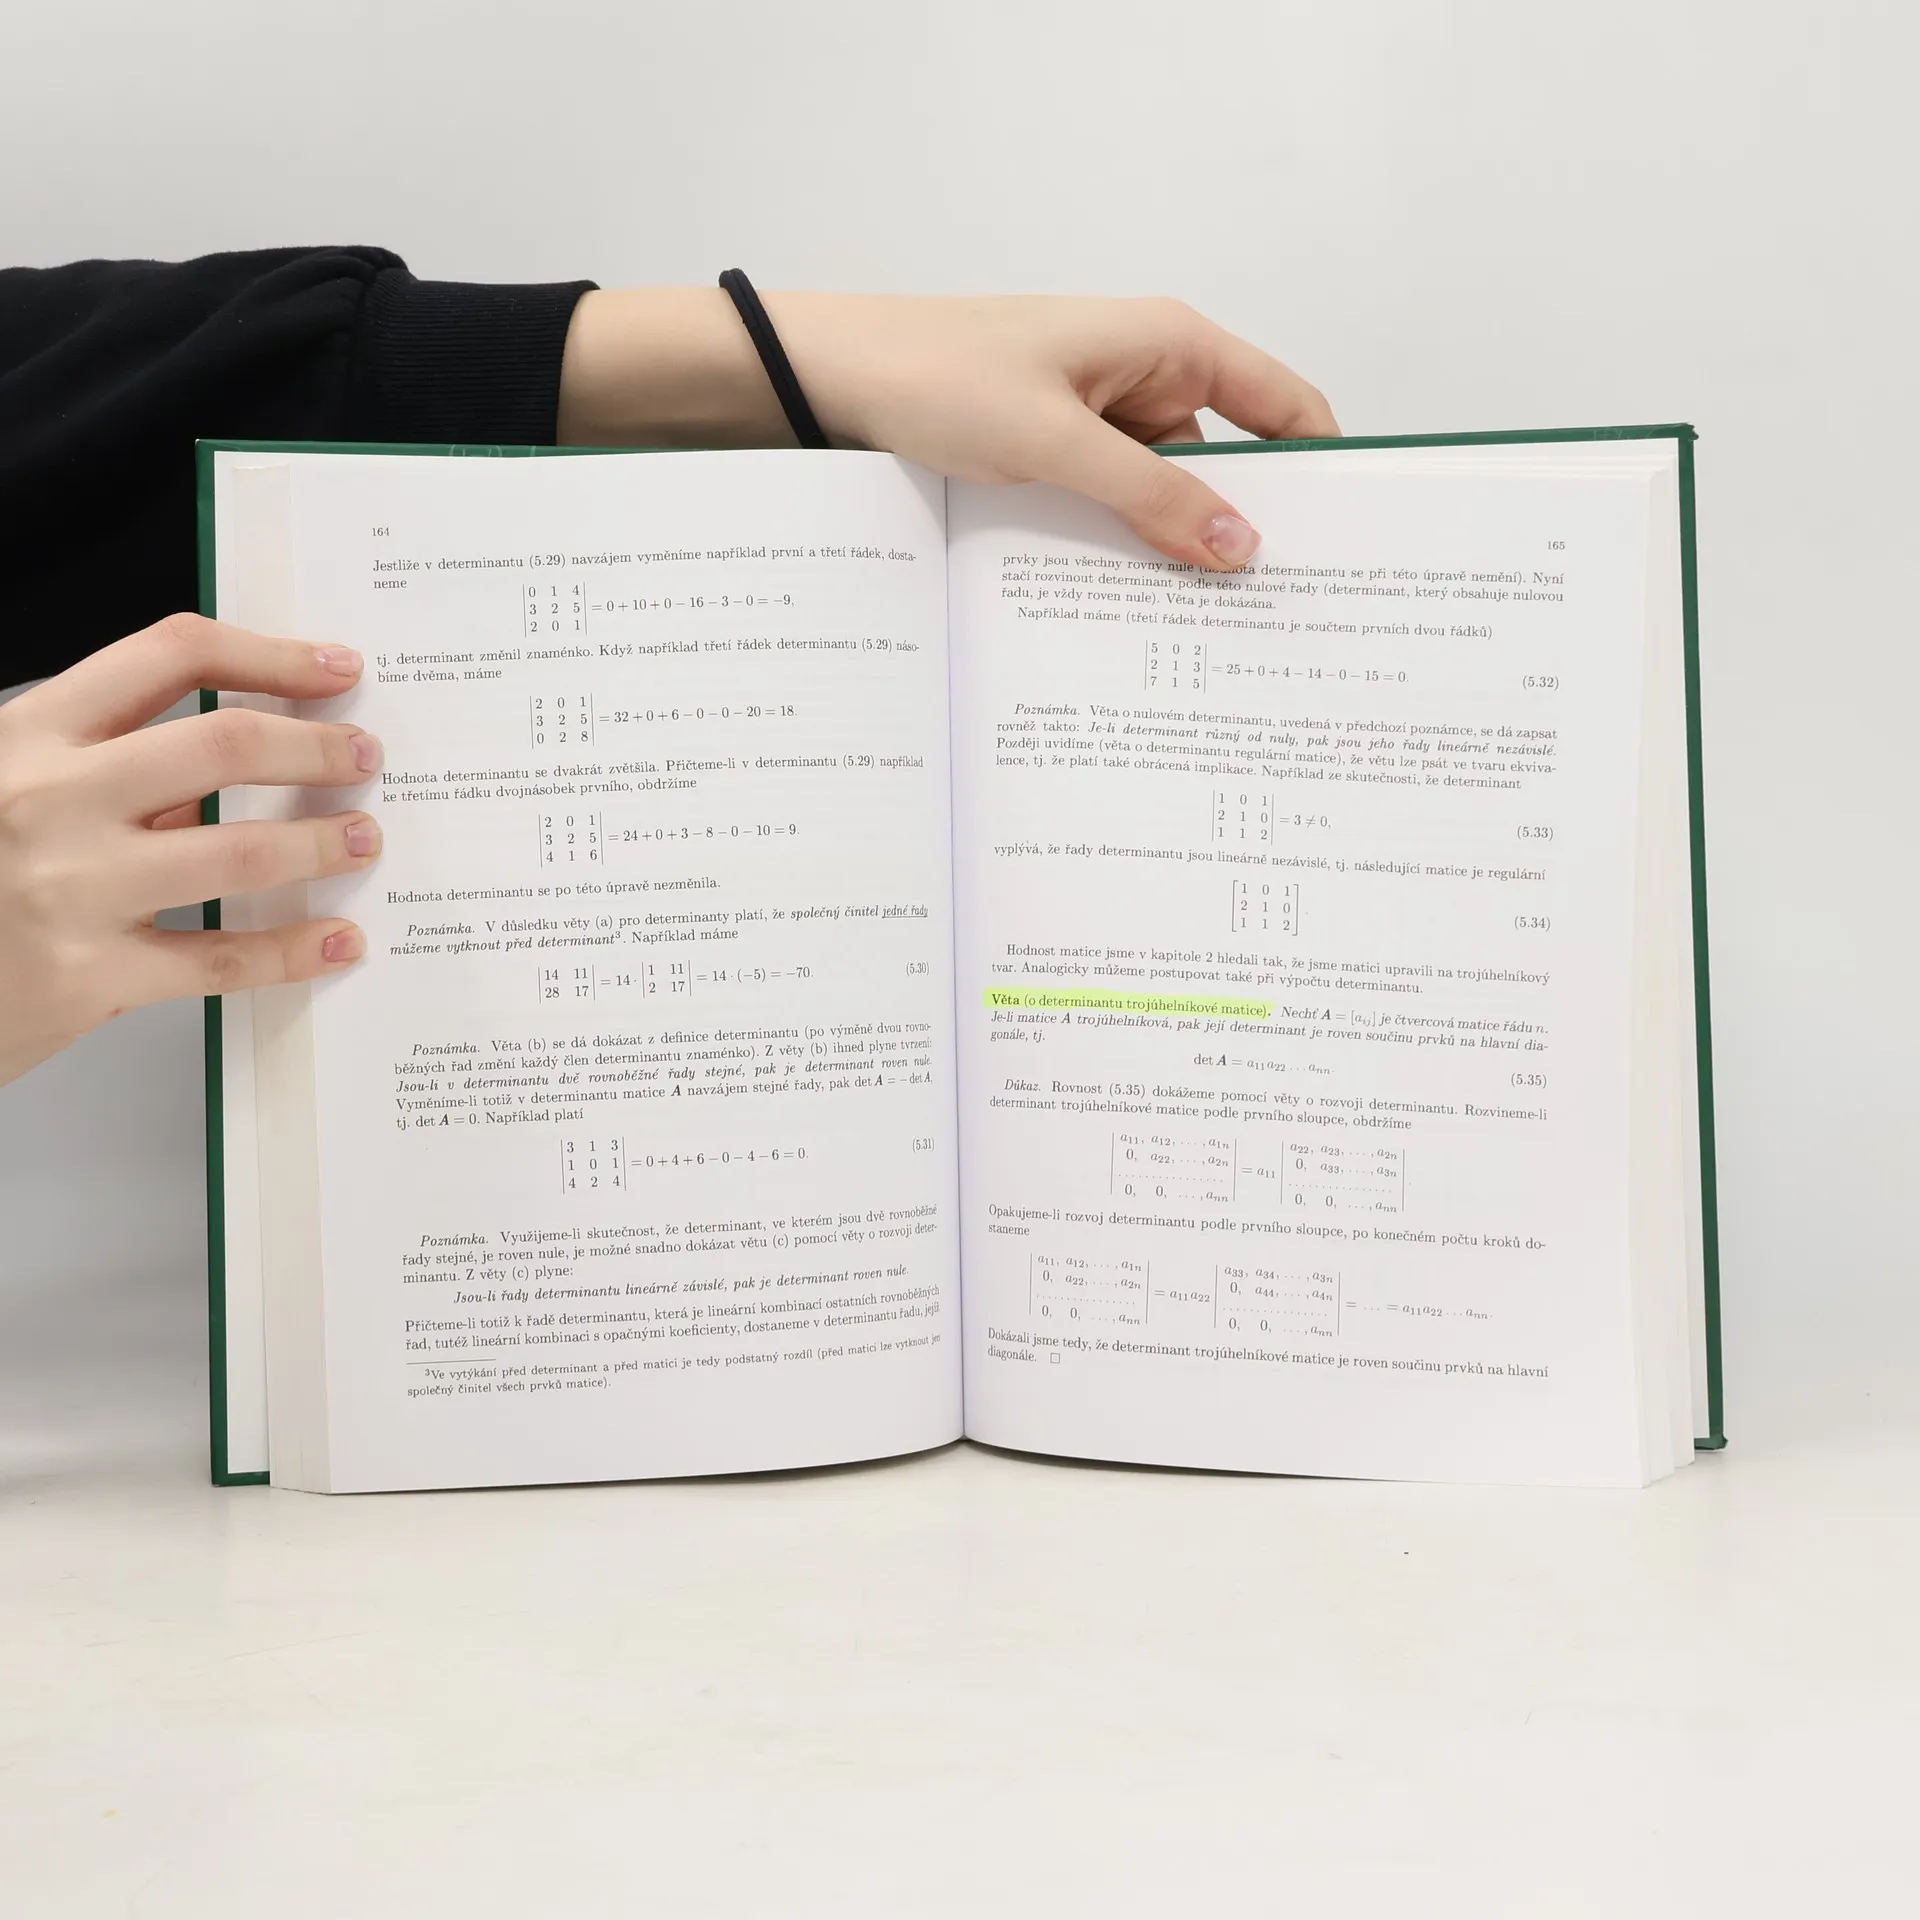 164
Jestliže v determinantu (5.29) navzájem vyměníme například první a třetí řádek, dosta-
neme
0 1 4
3 2 5 = 0 + 10 + 0 − 16 − 3 − 0 = −9,
2 0 1
tj. determinant změnil znaménko. Když například třetí řádek determinantu (5.29) náso-
bíme dvěma, máme
2 0 1
3 2 5 = 32 + 0 + 6 − 0 − 0 − 20 = 18.
0 2 8
Hodnota determinantu se dvakrát zvětšila. Přičteme-li v determinantu (5.29) například
ke třetímu řádku dvojnásobek prvního, obdržíme
2 0 1
3 2 5 = 24 + 0 + 3 − 8 − 0 − 10 = 9.
4 1 6
Hodnota determinantu se po této úpravě nezměnila.
Poznámka. V důsledku věty (a) pro determinanty platí, že společný činitel jedné řady
můžeme vytknout před determinant³. Například máme
14 11 = 14 · 1 11 = 14 · (−5) = −70. (5.30)
28 17 2 17
Poznámka. Věta (b) se dá dokázat z definice determinantu (po výměně dvou rovno-
běžných řad změní každý člen determinantu znaménko). Z věty (b) ihned plyne tvrzení:
Jsou-li v determinantu dvě rovnoběžné řady stejné, pak je determinant roven nule.
Vyměníme-li totiž v determinantu matice A navzájem stejné řady, pak det A = − det A,
tj. det A = 0. Například platí
3 1 3
1 0 1 = 0 + 4 + 6 − 0 − 4 − 6 = 0. (5.31)
4 2 4
Poznámka. Využijeme-li skutečnost, že determinant, ve kterém jsou dvě rovnoběžné
řady stejné, je roven nule, je možné snadno dokázat větu (c) pomocí věty o rozvoji deter-
minantu. Z věty (c) plyne:
Jsou-li řady determinantu lineárně závislé, pak je determinant roven nule.
Přičteme-li totiž k řadě determinantu, která je lineární kombinací ostatních rovnoběžných
řad, tutéž lineární kombinaci s opačnými koeficienty, dostaneme v determinantu řadu, jejíž
³Ve vytýkání před determinant a před matici je tedy podstatný rozdíl (před matici lze vytknout jen
společný činitel všech prvků matice).
165
prvky jsou všechny rovny nule determinantu se při této úpravě nemění). Nyní
stačí rozvinout determinant podle této nulové řady (determinant, který obsahuje nulovou
řadu, je vždy roven nule). Věta je dokázána.
Například máme (třetí řádek determinantu je součtem prvních dvou řádků)
5 0 2
2 1 3 = 25 + 0 + 4 − 14 − 0 − 15 = 0. (5.32)
7 1 5
Poznámka. Věta o nulovém determinantu, uvedená v předchozí poznámce, se dá zapsat
rovněž takto: Je-li determinant různý od nuly, pak jsou jeho řady lineárně nezávislé.
Později uvidíme (věta o determinantu regulární matice), že větu lze psát ve tvaru ekviva-
lence, tj. že platí také obrácená implikace. Například ze skutečnosti, že determinant
1 0 1
2 1 0 = 3 ≠ 0, (5.33)
1 1 2
vyplývá, že řady determinantu jsou lineárně nezávislé, tj. následující matice je regulární
1 0 1
2 1 0 . (5.34)
1 1 2
Hodnost matice jsme v kapitole 2 hledali tak, že jsme matici upravili na trojúhelníkový
tvar. Analogicky můžeme postupovat také při výpočtu determinantu.
Věta (o determinantu trojúhelníkové matice). Nechť A = [aij] je čtvercová matice řádu n.
Je-li matice A trojúhelníková, pak její determinant je roven součinu prvků na hlavní dia-
gonále, tj.
det A = a11a22 . . . ann. (5.35)
Důkaz. Rovnost (5.35) dokážeme pomocí věty o rozvoji determinantu. Rozvineme-li
determinant trojúhelníkové matice podle prvního sloupce, obdržíme
a11, a12, . . . , a1n a22, a23, . . . , a2n
0, a22, . . . , a2n = a11 0, a33, . . . , a3n
. . . . . . . . . . . . . . . . . . . . . . . . . . . .
0, 0, . . . , ann 0, 0, . . . , ann
Opakujeme-li rozvoj determinantu podle prvního sloupce, po konečném počtu kroků do-
staneme
a11, a12, . . . , a1n a33, a34, . . . , a3n
0, a22, . . . , a2n = a11a22 0, a44, . . . , a4n = . . . = a11a22 . . . ann.
. . . . . . . . . . . . . . . . . . . . . . . . . . . .
0, 0, . . . , ann 0, 0, . . . , ann
Dokázali jsme tedy, že determinant trojúhelníkové matice je roven součinu prvků na hlavní
diagonále. □